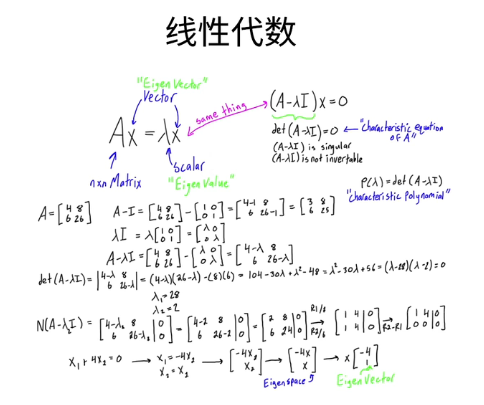 线性代数
"Eigen Vector"
Vector
same thing
Ax = λx
(A-λI)x = 0
det(A-λI) = 0 ← "Characteristic equation of A"
(A-λI) is singular
(A-λI) is not invertable
n×n Matrix
Scalar
"Eigen Value"
P(λ) = det(A-λI)
"Characteristic Polynomial"
A = [4 8; 6 26] A-I = [4 8; 6 26] - [1 0; 0 1] = [4-1 8; 6 26-1] = [3 8; 6 25]
λI = λ[1 0; 0 1] = [λ 0; 0 λ]
A-λI = [4 8; 6 26] - [λ 0; 0 λ] = [4-λ 8; 6 26-λ]
det(A-λI) = |4-λ 8; 6 26-λ| = (4-λ)(26-λ)-(8)(6) = 104-30λ+λ²-48 = λ²-30λ+56 = (λ-28)(λ-2) = 0
λ₁ = 28
λ₂ = 2
N(A-λI) = [4-λ₂ 8 | 0; 6 26-λ₂ | 0] = [4-2 8 | 0; 6 26-2 | 0] = [2 8 | 0; 6 24 | 0] R1/2 R2/6 → [1 4 | 0; 1 4 | 0] R2-R1 → [1 4 | 0; 0 0 | 0]
x₁ + 4x₂ = 0 → x₁ = -4x₂ x₂ = x₂ → [-4x₂; x₂] → [-4x; x] → x[-4; 1]
Eigenspace
Eigenvector